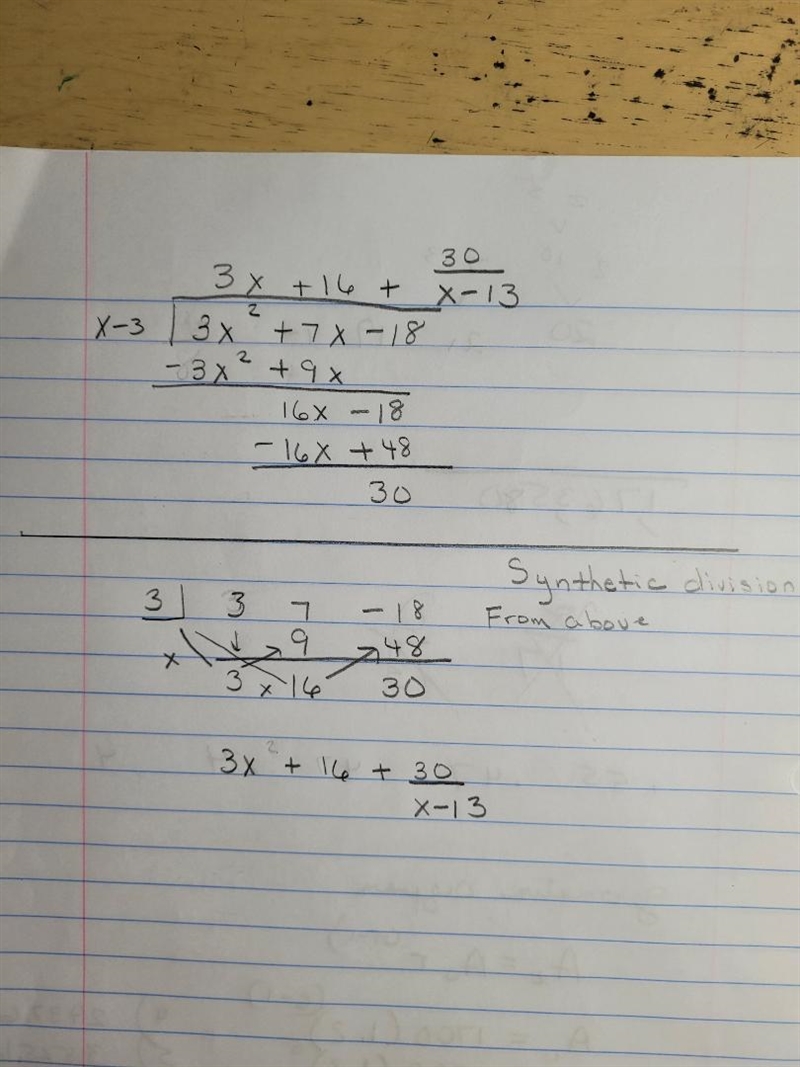 3x + 16 + 30/x-13
x-3 | 3x² + 7x - 18
-3x² + 9x
16x - 18
-16x + 48
30
Synthetic division
From above
3 | 3 7 -18
x 9 48
3 x 16 30
3x² + 16 + 30/x-13